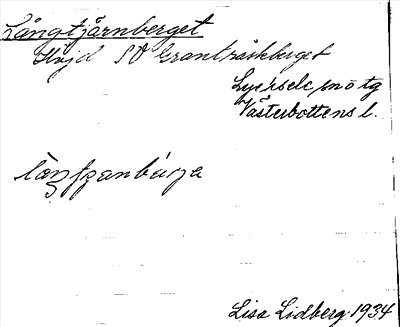 Långtjärnberget
Höjd SV Granträskberget
Lycksele snö tg
Västerbottens l.
Lisa Lidberg 1934